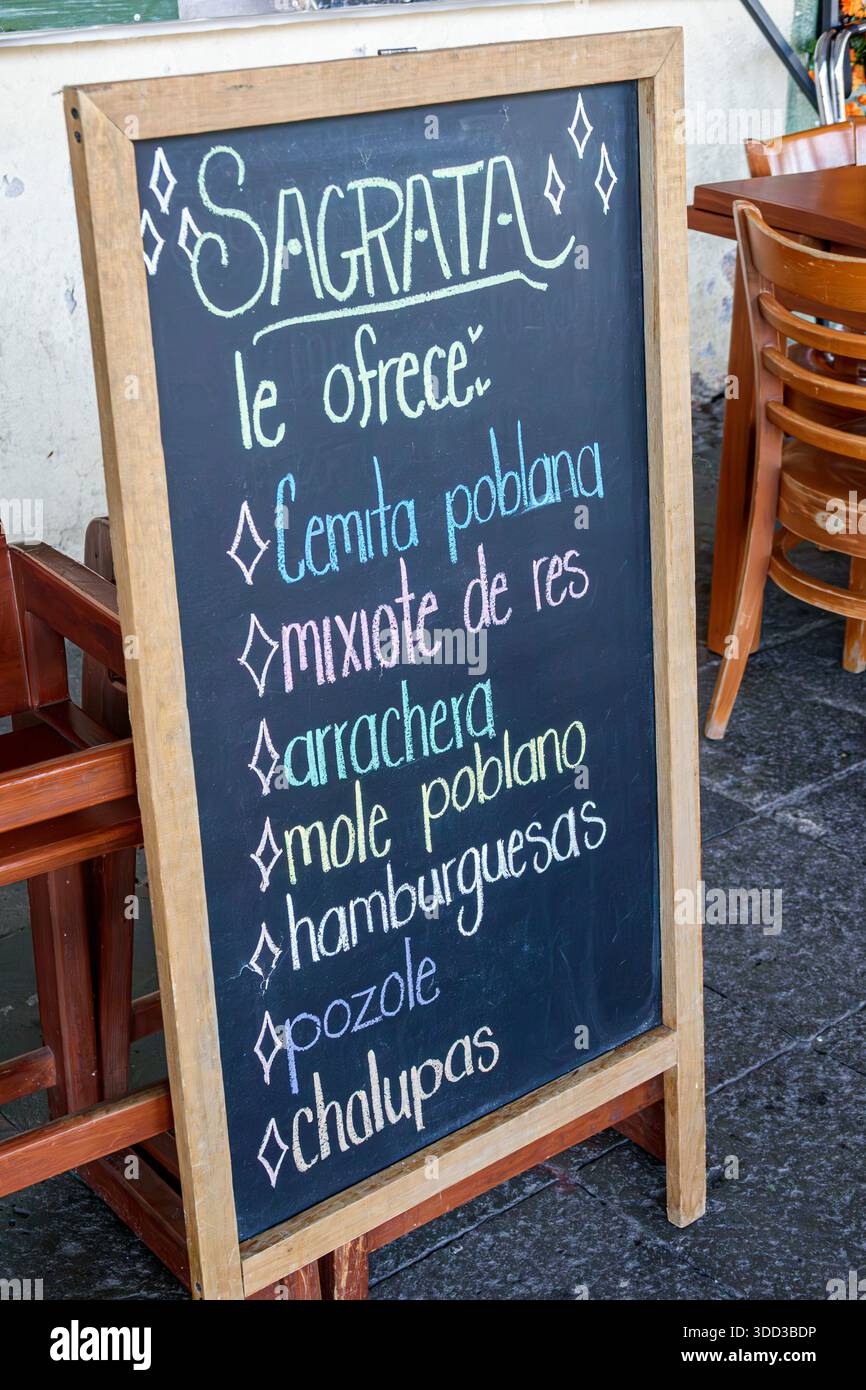 SAGRATA
le ofrece:
Cemita poblana
mixiote de res
arrachera
mole poblano
hamburguesas
pozole
chalupas
alamy
Image ID: 3DD3BDP
www.alamy.com